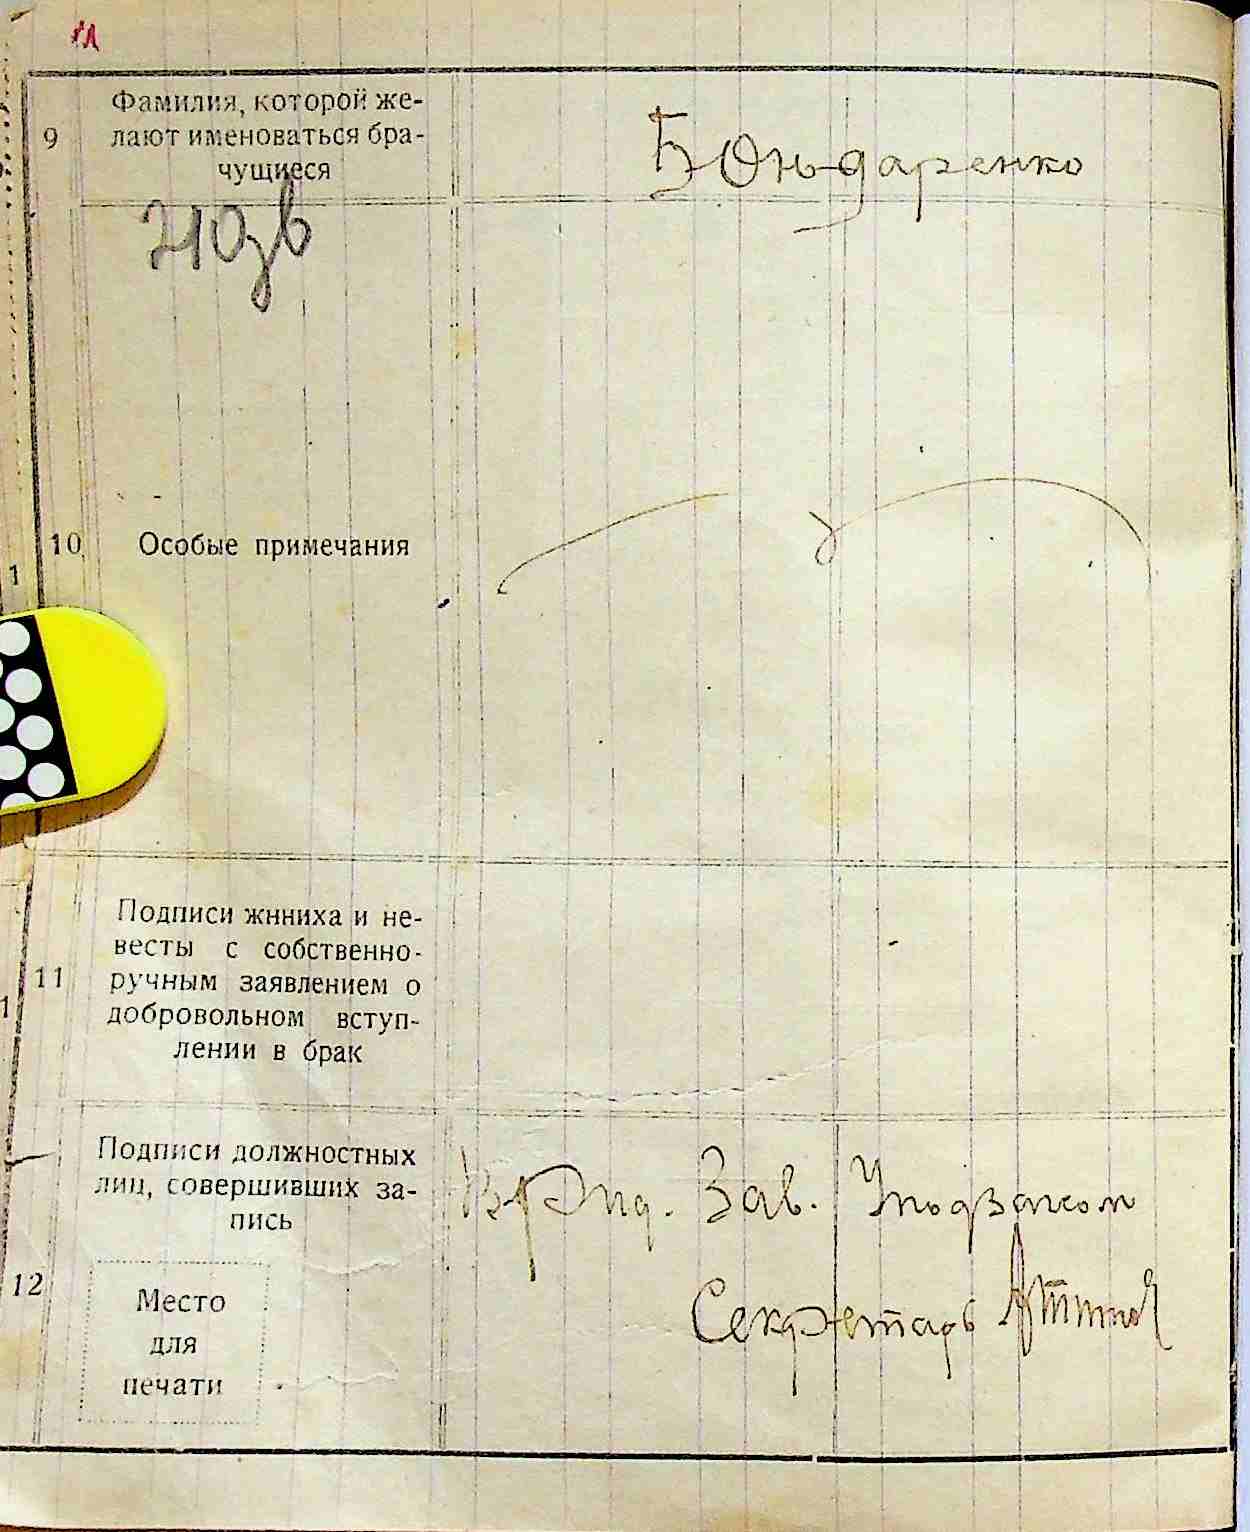 9
Фамилия, которой же-
лают именоваться бра-
чущиеся
Бондаренко
10
Особые примечания
1
11
Подписи жнниха и не-
весты с собственно-
ручным заявлением о
добровольном вступ-
лении в брак
1
12
Подписи должностных
лиц, совершивших за-
пись
Врид. Зав. Уподзагсом
Секретарь
Место
для
печати